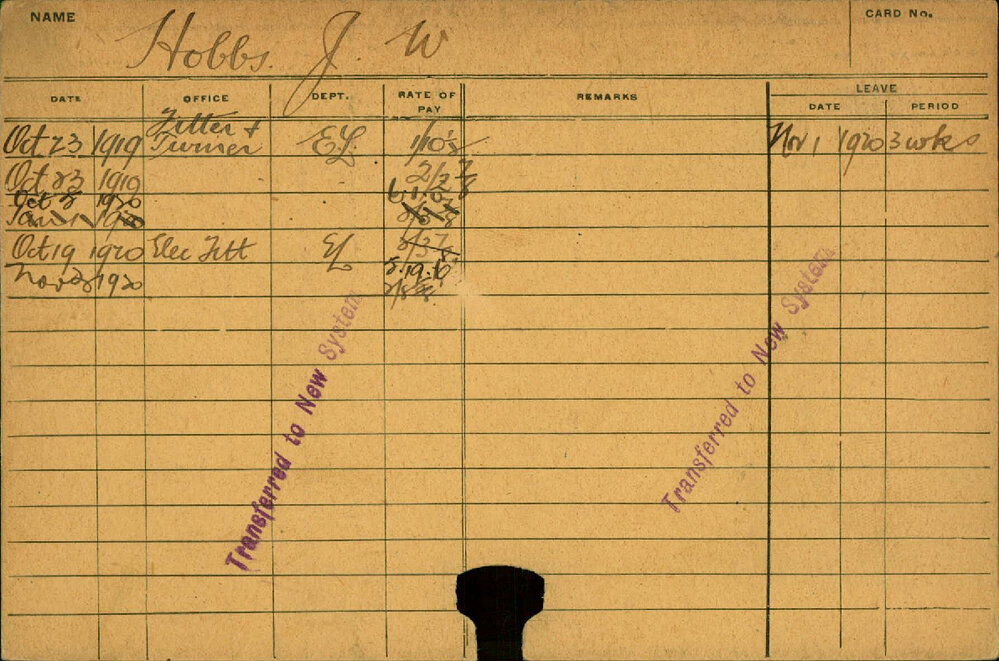 NAME Hobbs. J. W CARD No.
LEAVE
DATE OFFICE DEPT. RATE OF PAY REMARKS DATE PERIOD
Fitter +
Oct 23 1919 Turner EL. Nov 1 1920 3 wks
Oct 23 1919 2/2
Oct 8 1920
Jan 1
Oct 19 1920 Elec Fitt EL
Nov 1920 5.19.10
Transferred to New System
Transferred to New System